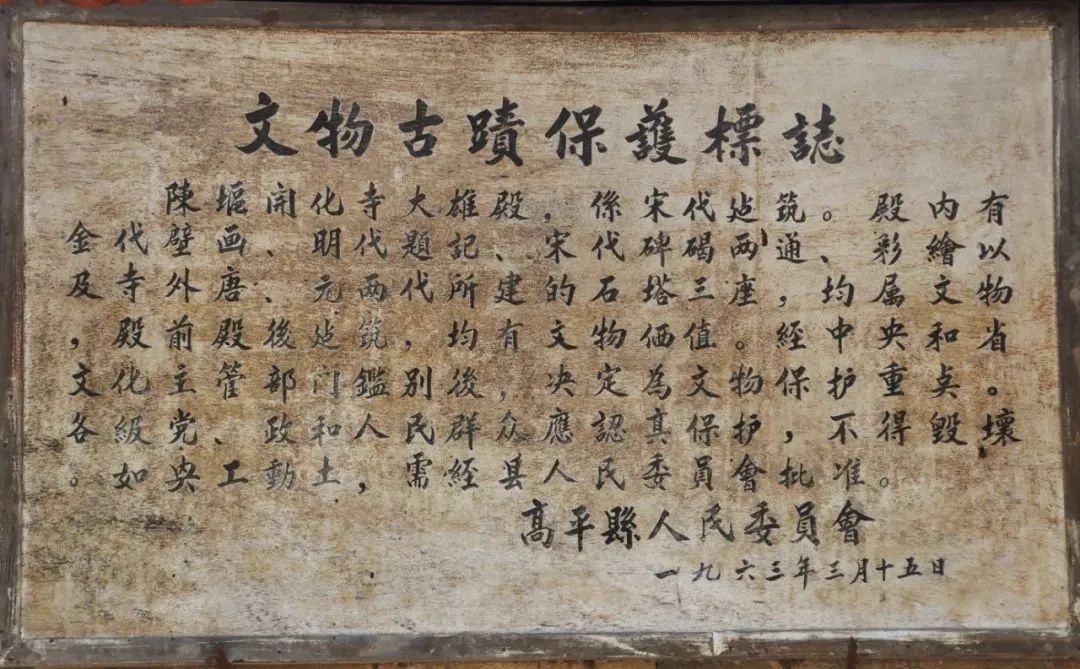 文物古蹟保護標誌
陳塸開化寺大雄殿,係宋代迠筑。殿内有
金代壁画、明代題記、宋代碑碣两通、彩繪以
及寺外唐、元两代所建的石塔三座,均属文物
,殿前殿後迠筑均有文物価值。経中央和省
文化主管部门鑑別後,决定為文物保护重奌。
各級党、政和人民群众應認真保护,不得毁壞
。如兴工動土,需経县人民委員會批准。
高平縣人民委員會
一九六三年三月十五日